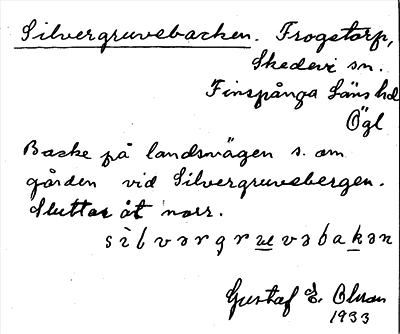 Silvergruvebacken. Frogstorp,
Skedevi sn.
Finspånga Läns hd
Ögl
Backe på landsvägen s. om
gården vid Silvergruvebergen.
Sluttar åt norr.
silvərgruvəbakən
Gustaf E. Olsson
1933